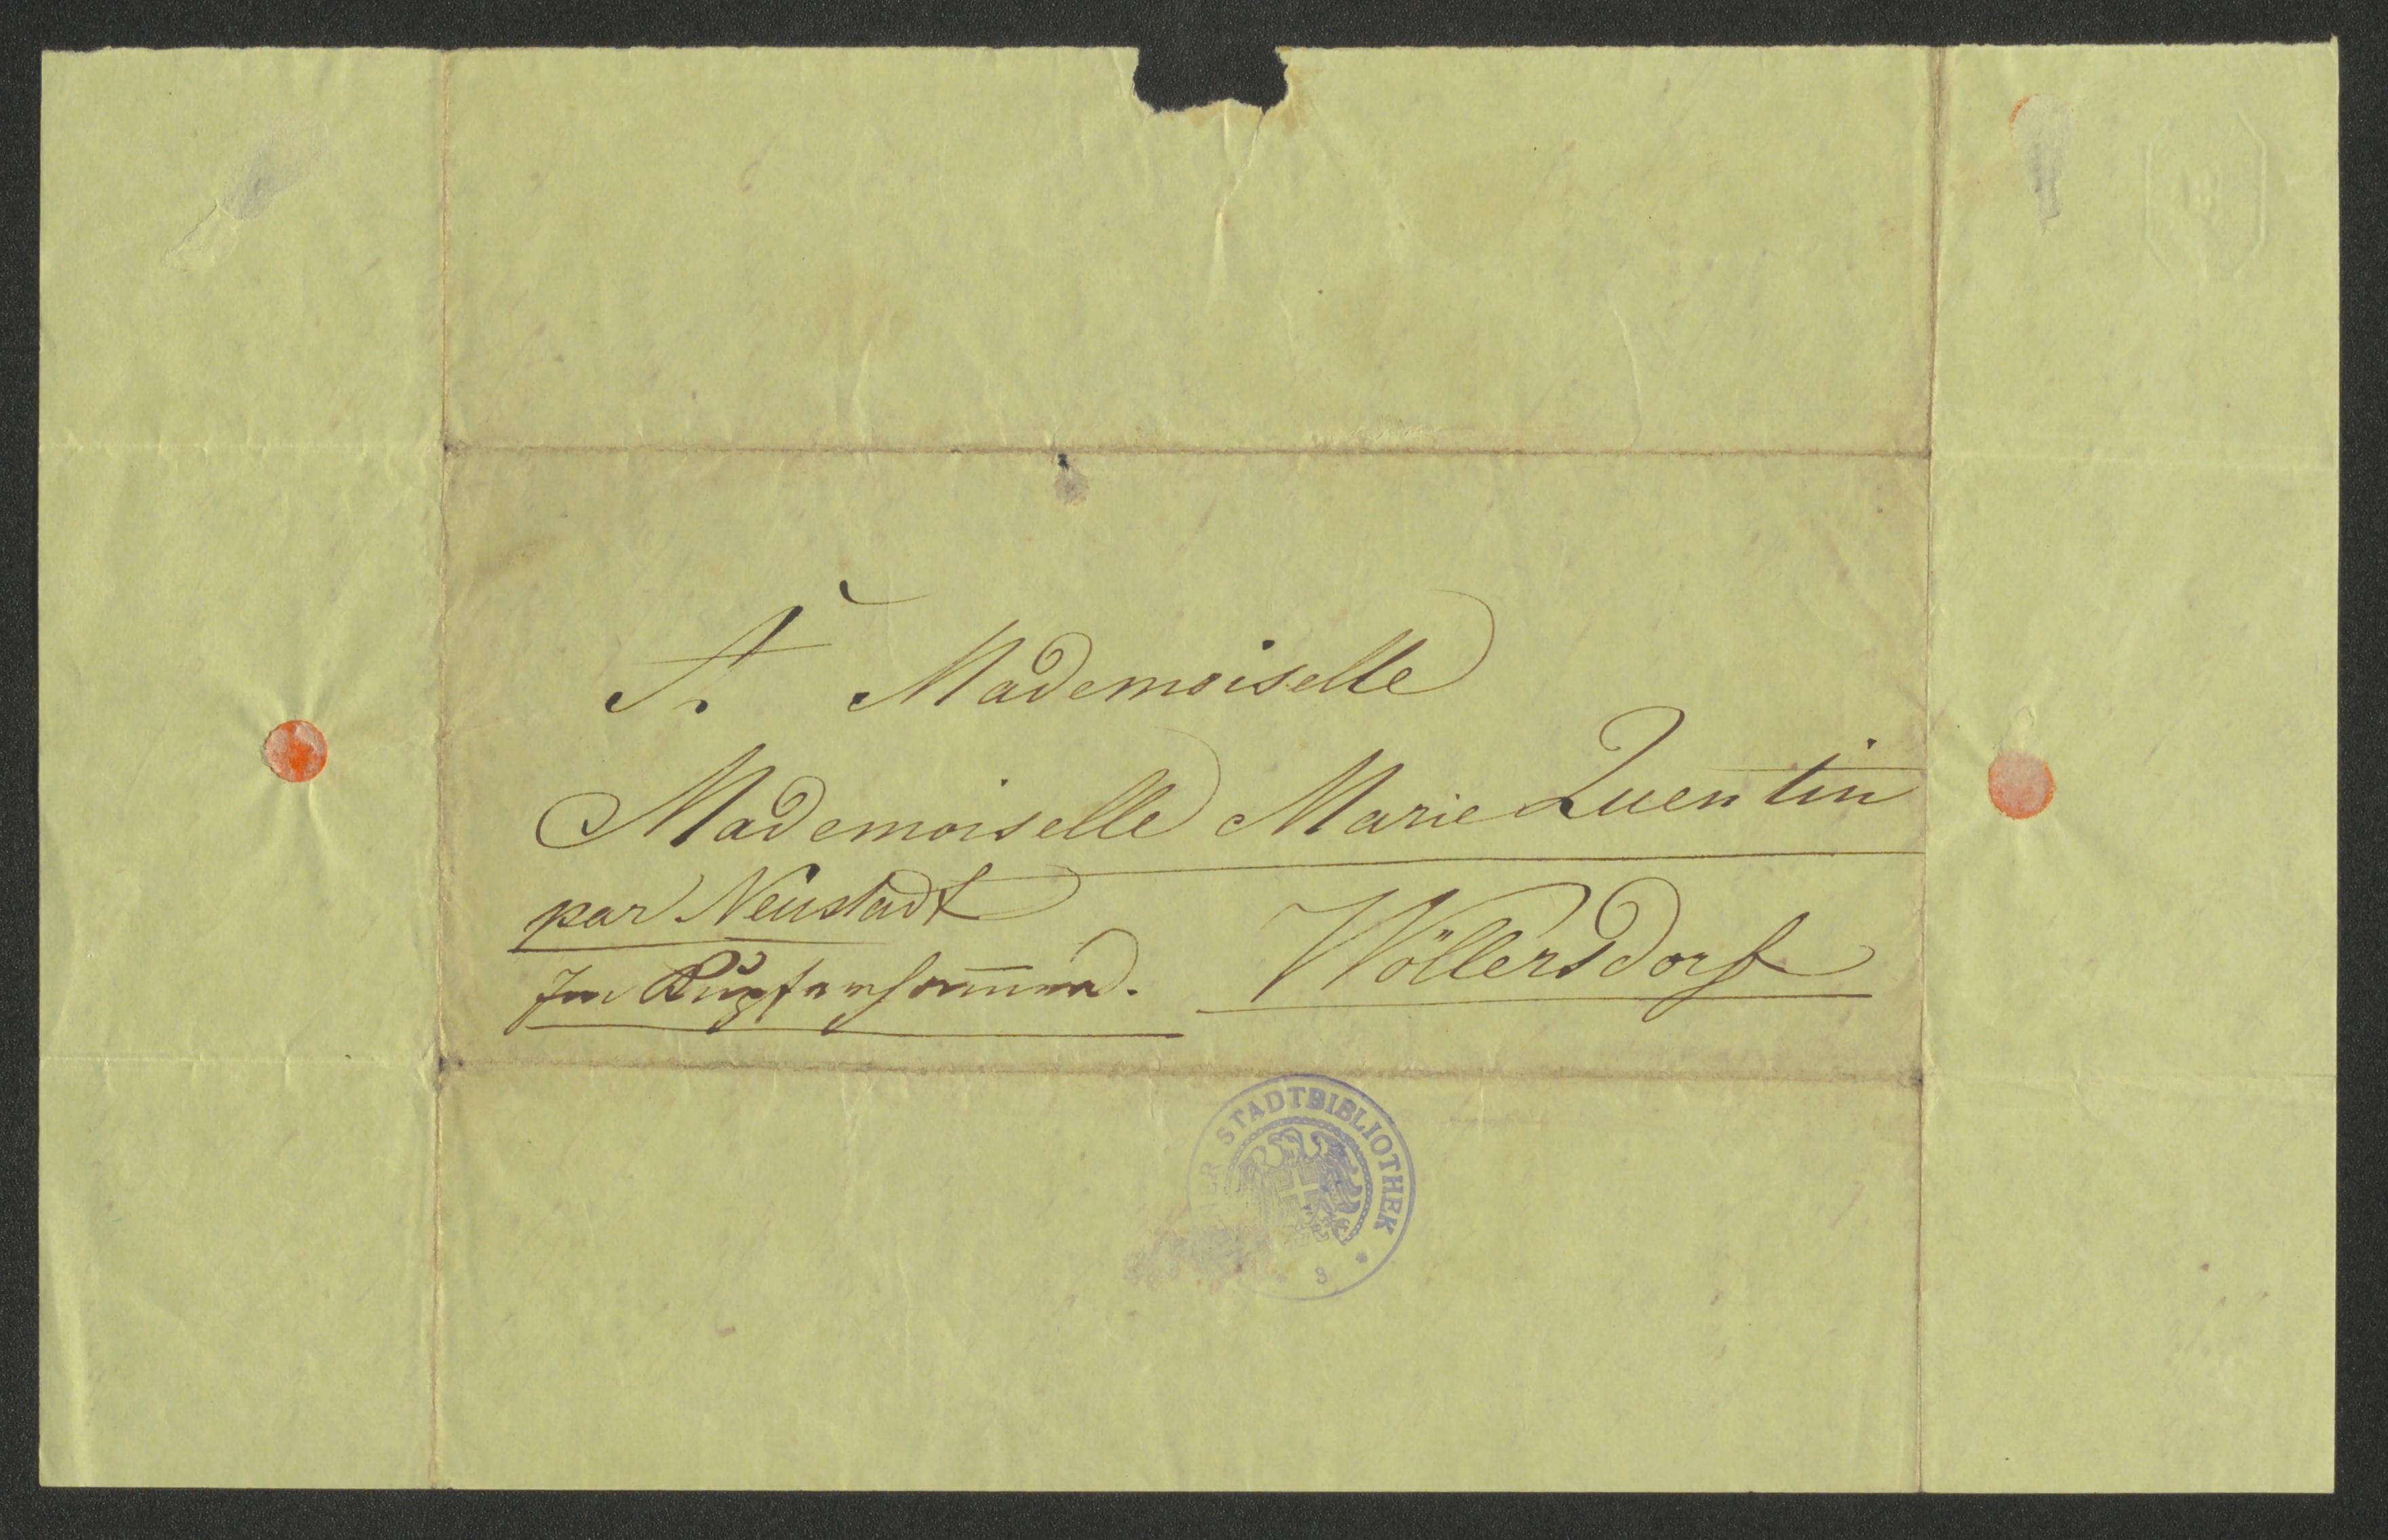 A Mademoiselle
Mademoiselle Marie Quentin
par Neustadt
Im Kupferham̄er. Wöllersdorf
STADTBIBLIOTHEK